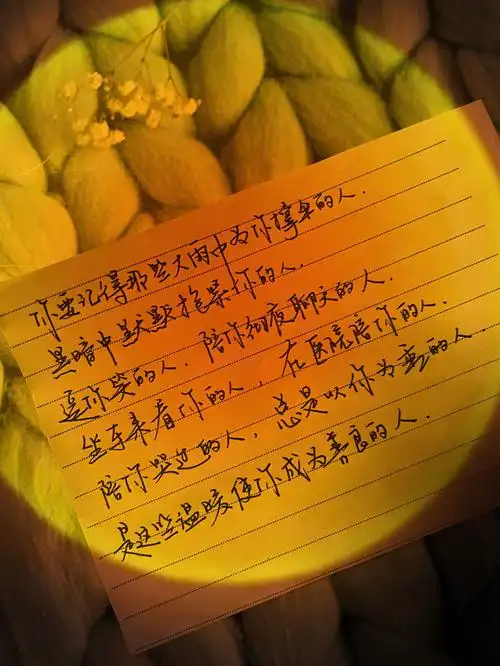 你要记得那些大雨中为你撑伞的人.
黑暗中默默抱紧你的人.
逗你笑的人.陪你彻夜聊天的人.
坐车来看你的人,在医院陪你的人.
陪你哭过的人,总是以你为重的人.
是这些温暖使你成为善良的人.